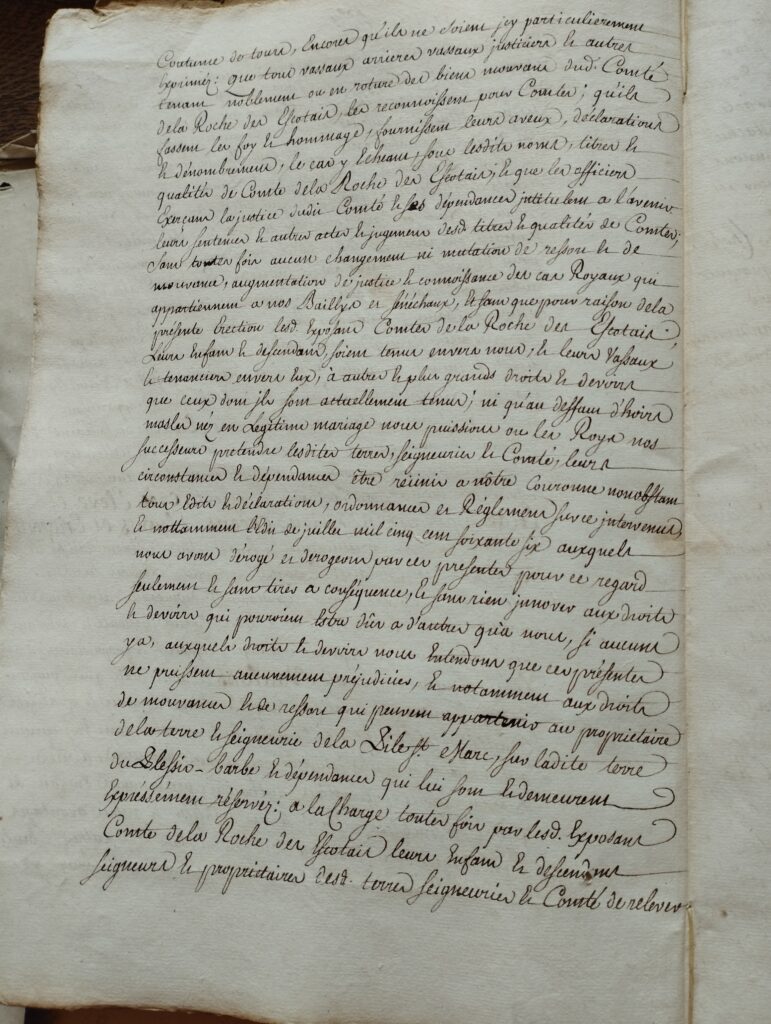 Coutume de tours, Encores qu'ils ne soient jcy particulierement
Exprimez: que tous vassaux arrieres vassaux justiciers & autres
tenans noblement ou en roture des biens mouvans dud. Comté
dela Roche des Escotais, les reconnoissent pour Comtes; qu'ils
fassent les foy & hommage, fournissent leurs aveux, déclarations
& dénombrement, le cas y Echeant, sous lesdits noms, titres &
qualités de Comte dela Roche des Escotais; & que les officiers
Exerçans la justice dudit Comté & ses dépendances jntitulent a l'avenir
leurs sentences & autres actes & jugemens desd. titres & qualités de Comtes;
sans toutes fois aucun changement ni mutation de ressort & de
mouvance, augmentation de justice & connoissance des cas Royaux qui
appartiennent a nos Baillys et sénéchaux, & sans que pour raison dela
présente Erection lesd. Exposans Comtes de la Roche des Escotais
Leurs Enfans & descendans, soient tenus envers nous, & leurs Vassaux
& tenanciers envers Eux, à autres & plus grands droits & devoirs
que ceux dont jls sont actuellement tenus; ni qu'au deffaut d'hoirs
masles néz en Légitime mariage nous puissions ou les Roys nos
successeurs pretendre lesdites terres, seigneuries & Comté, leurs
circonstances & dépendances être réunis a nôtre Couronne nonobstant
tous Edits & déclarations, ordonnances et Réglemens sur ce intervenus,
& nottamment l'Edit de juillet mil cinq cent soixante six auxquels
nous avons dérogé et derogeons par ces presentes pour ce regard
seulement & sans tirer a conséquence, & sans rien jnnover aux droits
& devoirs qui pouroient Estre dûs a d'autres qu'à nous, si aucuns
ya, auxquels droits & devoirs nous Entendons que ces présentes
ne puissent aucunement préjudicier, & notamment aux droits
de mouvance & de ressort qui peuvent appartenir au propriétaire
dela terre & seigneurie dela Pile St. Marc, sur ladite terre
du Plessis-barbe & dépendances qui lui sont & demeurent
Expréssément réservez: a la Charge toutes fois par lesd. Exposans
Comte dela Roche des Escotais leurs Enfans & descendans
seigneurs & propriétaires desd. terres seigneuries & Comté de relever